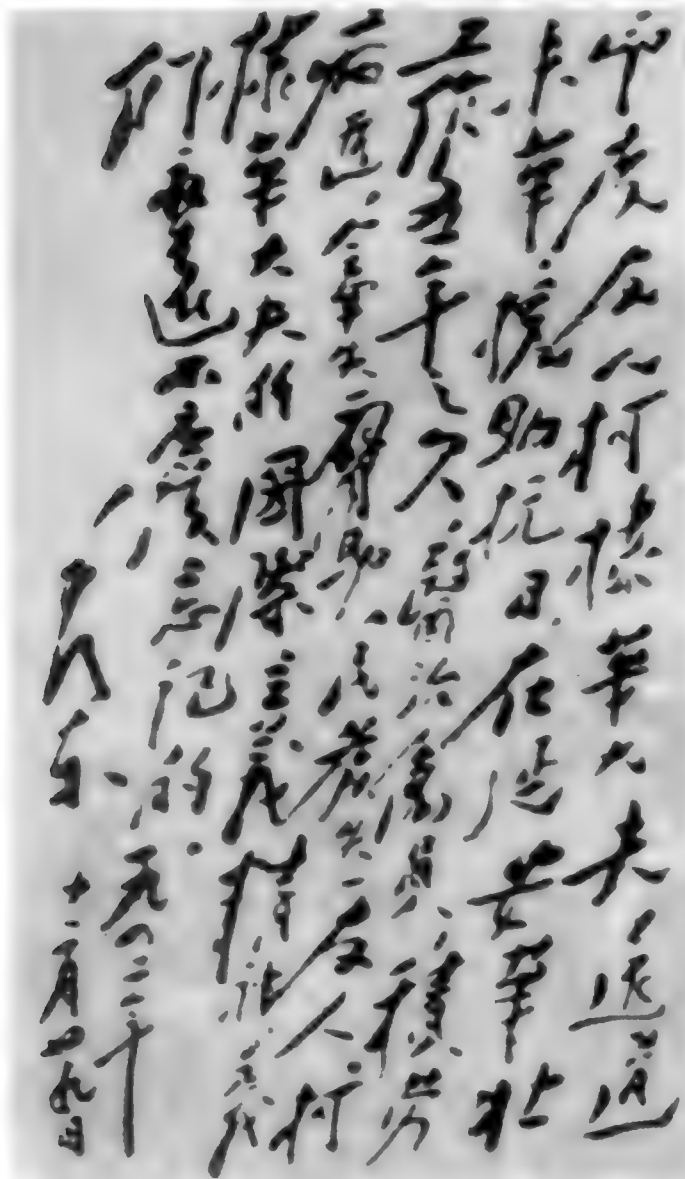 印度友人柯棣華大夫遠道
来華援助抗日,在延安華北
工作五年之久,醫治傷員,積勞
病逝,全軍失一臂助,民族失一友人。柯
棣華大夫的國際主義精神,是我
們永遠不應該忘記的。
毛澤東
一九四二年
十二月廿九日